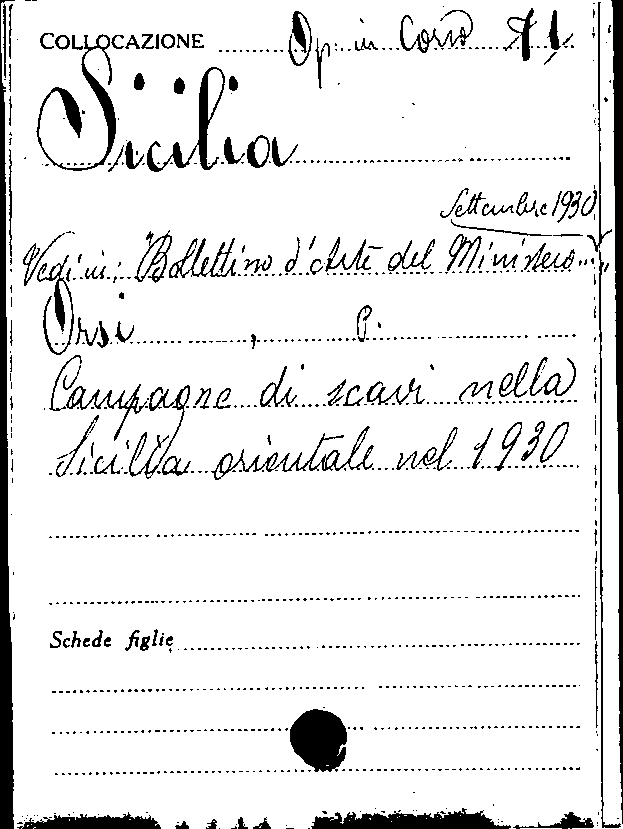 COLLOCAZIONE Op. in Corso A 1
Sicilia
Settembre 1930
Vedi in: "Bollettino d'Arte del Ministero..."
Orsi, P.
Campagne di scavi nella
Sicilia orientale nel 1930
Schede figlie